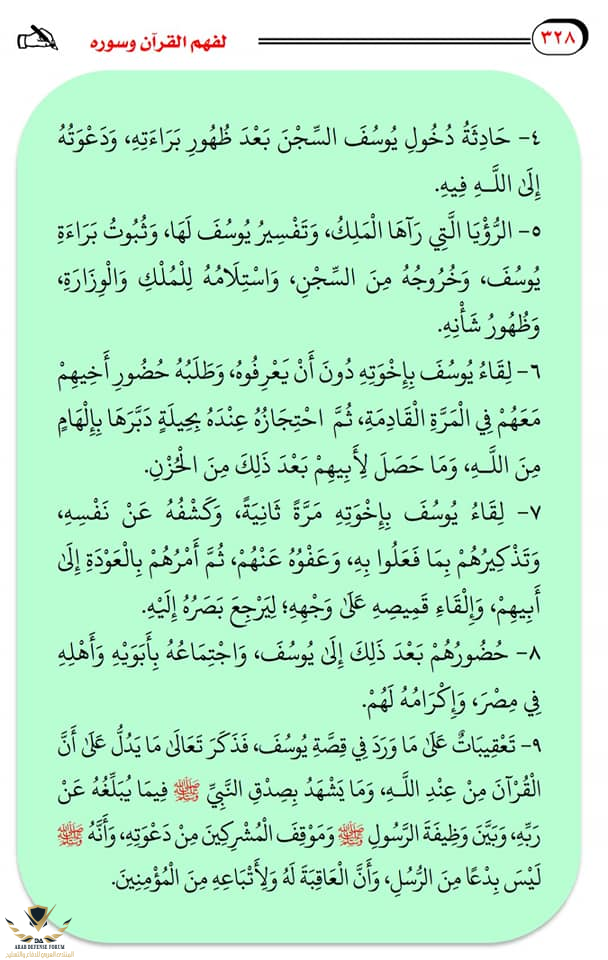 ٣٢٨
لفهم القرآن وسوره
٤- حَادِثَةُ دُخُولِ يُوسُفَ السِّجْنَ بَعْدَ ظُهُورِ بَرَاءَتِهِ، وَدَعْوَتُهُ
إِلَى اللَّـهِ فِيهِ.
٥- الرُّؤْيَا الَّتِي رَآهَا الْمَلِكُ، وَتَفْسِيرُ يُوسُفَ لَهَا، وَثُبُوتُ بَرَاءَةِ
يُوسُفَ، وَخُرُوجُهُ مِنَ السِّجْنِ، وَاسْتِلَامُهُ لِلْمُلْكِ وَالْوِزَارَةِ،
وَظُهُورُ شَأْنِهِ.
٦- لِقَاءُ يُوسُفَ بِإِخْوَتِهِ دُونَ أَنْ يَعْرِفُوهُ، وَطَلَبُهُ حُضُورِ أَخِيهِمْ
مَعَهُمْ فِي الْمَرَّةِ الْقَادِمَةِ، ثُمَّ احْتِجَازُهُ عِنْدَهُ بِحِيلَةٍ دَبَّرَهَا بِإِلْهَامٍ
مِنَ اللَّـهِ، وَمَا حَصَلَ لِأَبِيهِمْ بَعْدَ ذَلِكَ مِنَ الْحُزْنِ.
٧- لِقَاءُ يُوسُفَ بِإِخْوَتِهِ مَرَّةً ثَانِيَةً، وَكَشْفُهُ عَنْ نَفْسِهِ،
وَتَذْكِيرُهُمْ بِمَا فَعَلُوا بِهِ، وَعَفْوُهُ عَنْهُمْ، ثُمَّ أَمْرُهُمْ بِالْعَوْدَةِ إِلَى
أَبِيهِمْ، وَإِلْقَاءِ قَمِيصِهِ عَلَى وَجْهِهِ؛ لِيَرْجِعَ بَصَرُهُ إِلَيْهِ.
٨- حُضُورُهُمْ بَعْدَ ذَلِكَ إِلَى يُوسُفَ، وَاجْتِمَاعُهُ بِأَبَوَيْهِ وَأَهْلِهِ
فِي مِصْرَ، وَإِكْرَامُهُ لَهُمْ.
٩- تَعْقِيبَاتٌ عَلَى مَا وَرَدَ فِي قِصَّةِ يُوسُفَ، فَذَكَرَ تَعَالَى مَا يَدُلُّ عَلَى أَنَّ
الْقُرْآنَ مِنْ عِنْدِ اللَّـهِ، وَمَا يَشْهَدُ بِصِدْقِ النَّبِيِّ ﷺ فِيمَا يُبَلِّغُهُ عَنْ
رَبِّهِ، وَبَيَّنَ وَظِيفَةَ الرَّسُولِ ﷺ وَمَوْقِفَ الْمُشْرِكِينَ مِنْ دَعْوَتِهِ، وَأَنَّهُ ﷺ
لَيْسَ بِدْعًا مِنَ الرُّسُلِ، وَأَنَّ الْعَاقِبَةَ لَهُ وَلِأَتْبَاعِهِ مِنَ الْمُؤْمِنِينَ.
DA
ARAB DEFENSE FORUM
المنتدى العربي للدفاع والتسليح